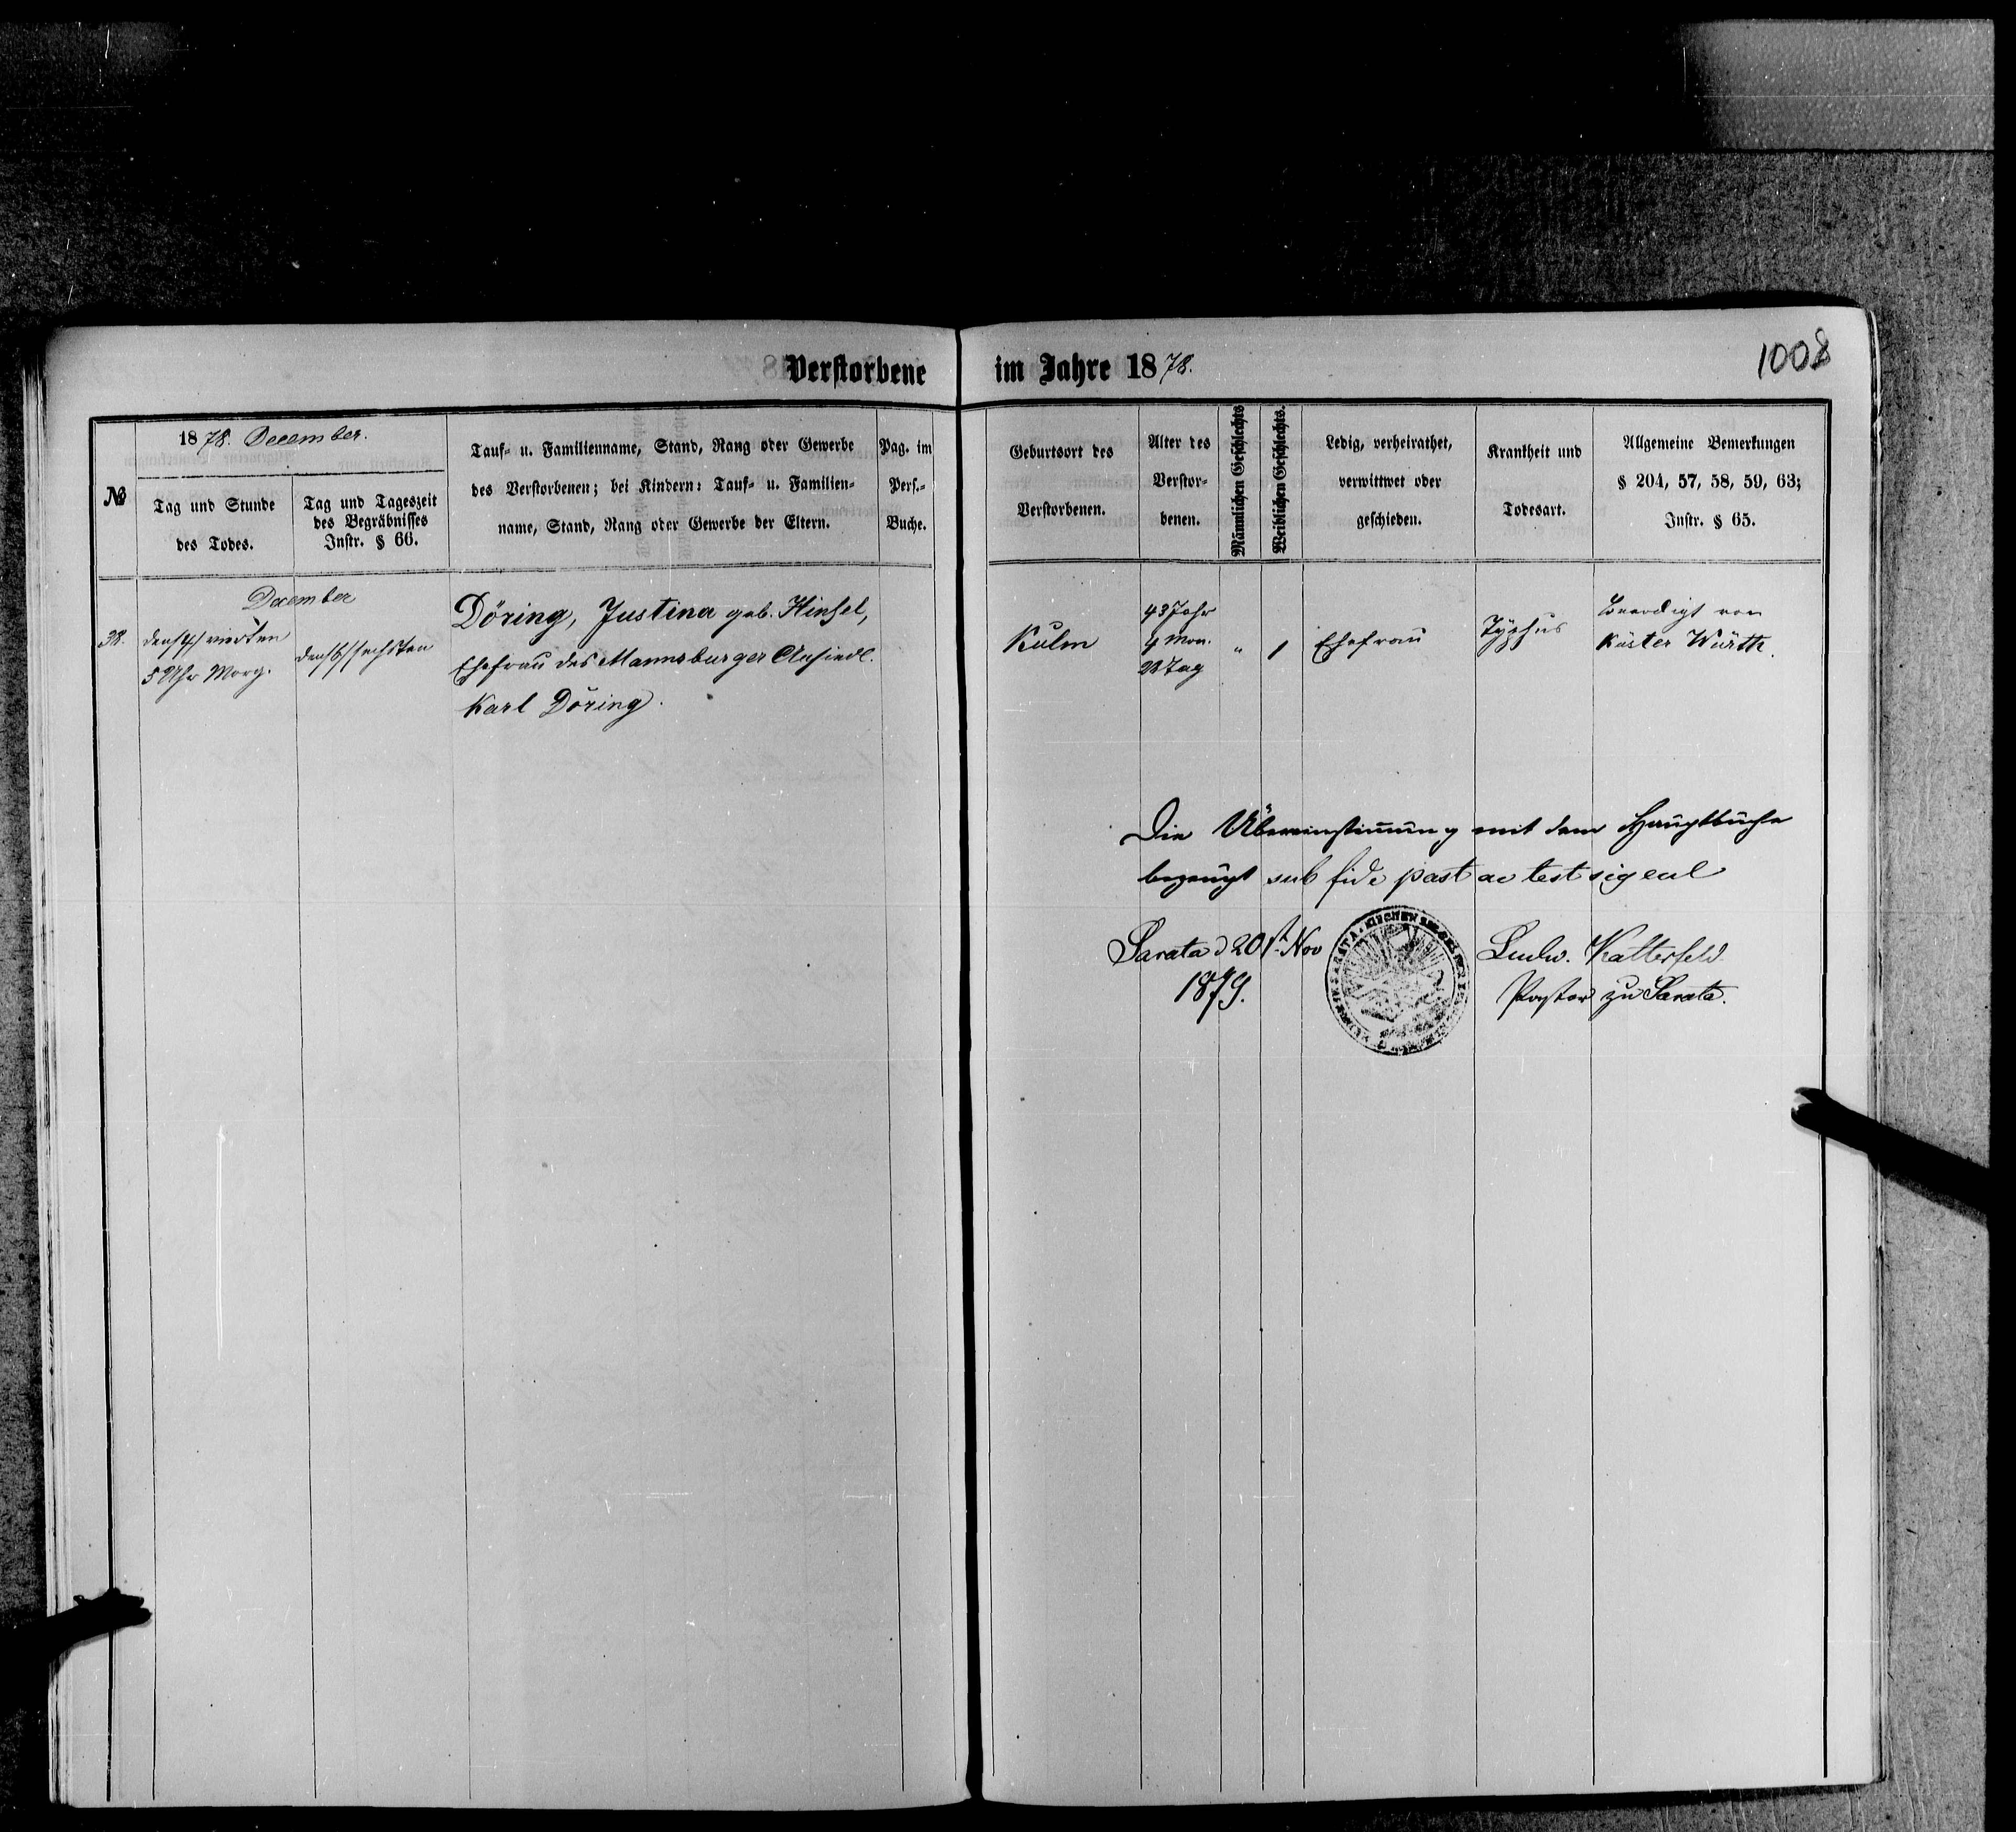 1008
Verstorbene im Jahre 1878.
№
1878. December.
Tag und Stunde
des Todes.
Tag und Tageszeit
des Begräbnisses
Instr. § 66.
Tauf- u. Familienname, Stand, Rang oder Gewerbe
des Verstorbenen; bei Kindern: Tauf- u. Familien-
name, Stand, Rang oder Gewerbe der Eltern.
Pag. im
Pers.-
Buche.
Geburtsort des
Verstorbenen.
Alter des
Verstor-
benen.
Männlichen Geschlechts
Weiblichen Geschlechts.
Ledig, verheirathet,
verwittwet oder
geschieden.
Krankheit und
Todesart.
Allgemeine Bemerkungen
§ 204, 57, 58, 59, 63;
Instr. § 65.
December
38.
den /4/ vierten
5 Uhr Morg.
den /6/ sechsten
Döring, Justina geb. Hinsel,
Ehefrau des Mannsburger Ansiedl.
Karl Döring.
Kulm
43 Jahr
4 Mon.
22 Tag
"
1
Ehefrau
Typhus
Beerdigt von
Küster Würth.
Die Übereinstimmung mit dem Hauptbuche
bezeugt sub fide past ac test sigeul
Sarata d 20st Nov
1879.
Ludw. Katterfeld
Pastor zu Sarata.